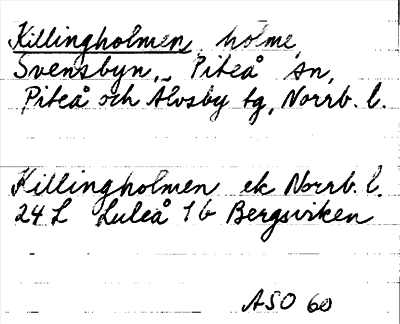 Killingholmen, holme,
Svensbyn, Piteå sn,
Piteå och Älvsby tg, Norrb. l.
Killingholmen ek Norrb. l.
24 L Luleå 1b Bergsviken
ASO 60